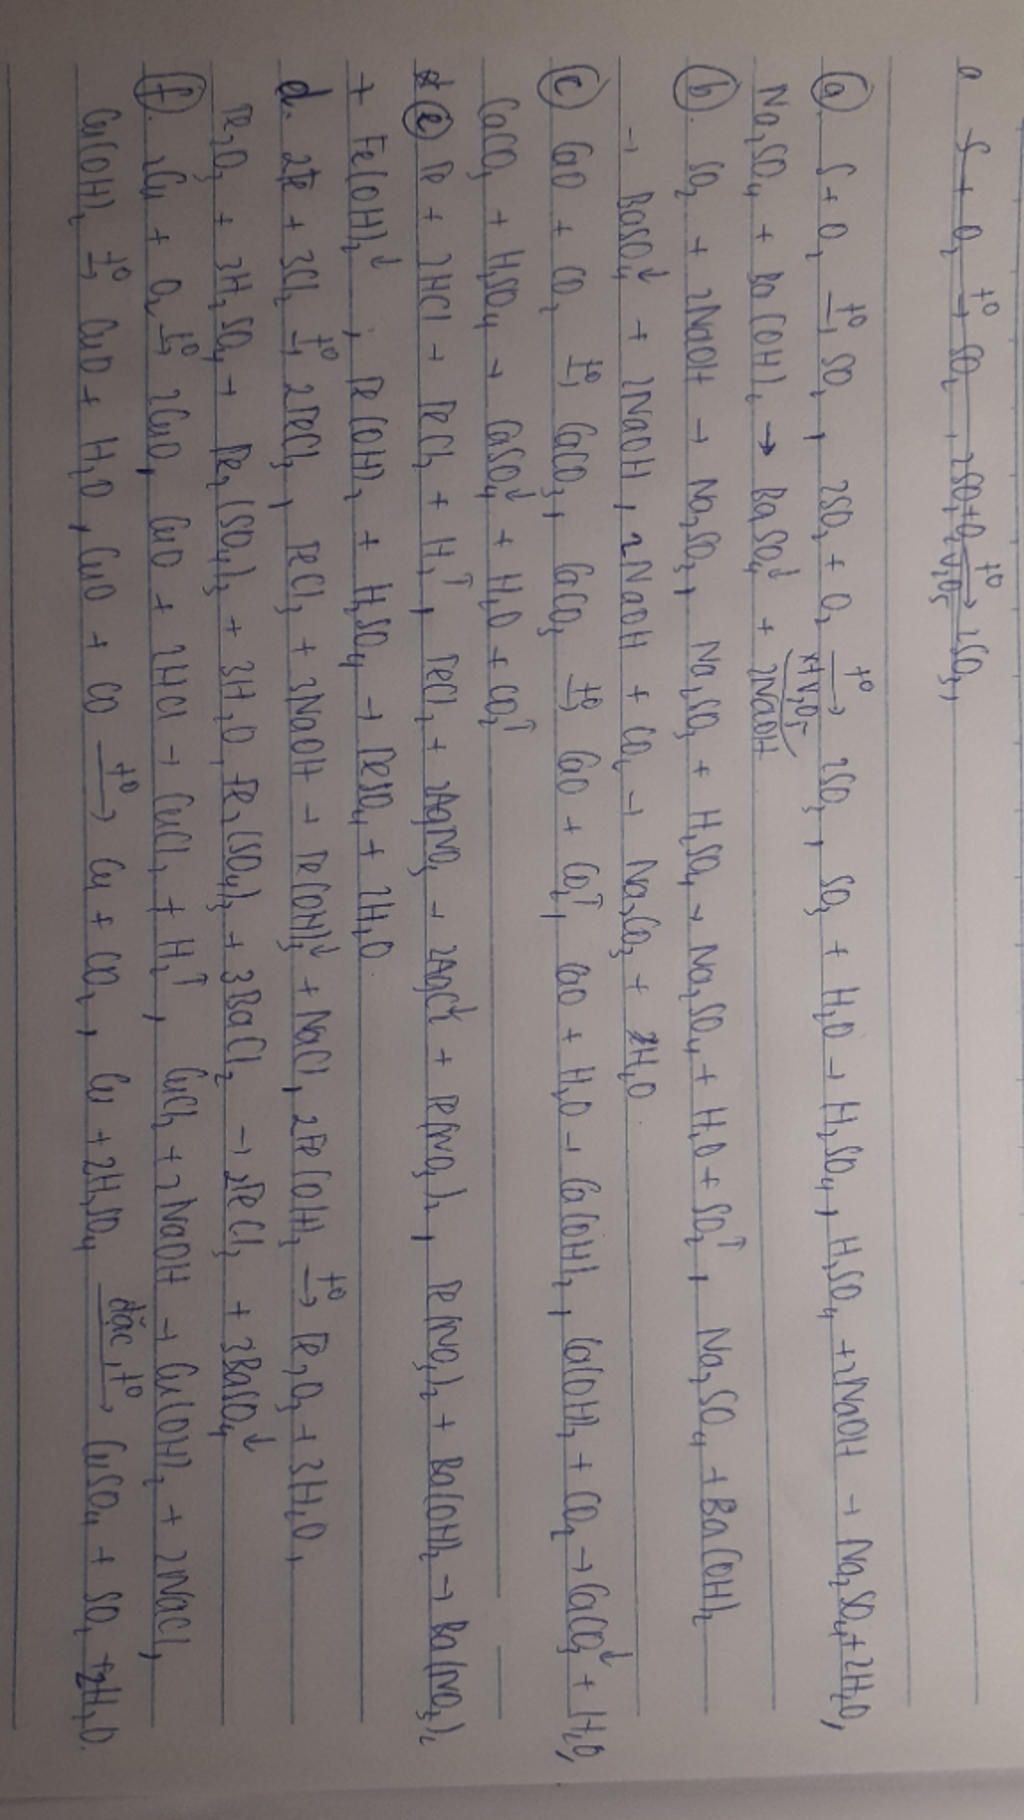 a S + O₂ —t°→ SO₂, 2SO₂ + O₂ —t°, V₂O₅→ 2SO₃,
(a). S + O₂ —t°→ SO₂, 2SO₂ + O₂ —t°, xt V₂O₅→ 2SO₃, SO₃ + H₂O → H₂SO₄, H₂SO₄ + 2NaOH → Na₂SO₄ + 2H₂O,
Na₂SO₄ + Ba(OH)₂ → BaSO₄↓ + 2NaOH
(b). SO₂ + 2NaOH → Na₂SO₃, Na₂SO₃ + H₂SO₄ → Na₂SO₄ + H₂O + SO₂↑, Na₂SO₄ + Ba(OH)₂
→ BaSO₄↓ + 2NaOH, 2NaOH + CO₂ → Na₂CO₃ + H₂O
(c) CaO + CO₂ —t°→ CaCO₃, CaCO₃ —t°→ CaO + CO₂↑, CaO + H₂O → Ca(OH)₂, Ca(OH)₂ + CO₂ → CaCO₃↓ + H₂O,
CaCO₃ + H₂SO₄ → CaSO₄↓ + H₂O + CO₂↑
(e) Fe + 2HCl → FeCl₂ + H₂↑, FeCl₂ + 2AgNO₃ → 2AgCl↓ + Fe(NO₃)₂, Fe(NO₃)₂ + Ba(OH)₂ → Ba(NO₃)₂
+ Fe(OH)₂↓, Fe(OH)₂ + H₂SO₄ → FeSO₄ + 2H₂O
d. 2Fe + 3Cl₂ —t°→ 2FeCl₃, FeCl₃ + 3NaOH → Fe(OH)₃↓ + NaCl, 2Fe(OH)₃ —t°→ Fe₂O₃ + 3H₂O,
Fe₂O₃ + 3H₂SO₄ → Fe₂(SO₄)₃ + 3H₂O, Fe₂(SO₄)₃ + 3BaCl₂ → 2FeCl₃ + 3BaSO₄↓
(f). 2Cu + O₂ —t°→ 2CuO, CuO + 2HCl → CuCl₂ + H₂↑, CuCl₂ + 2NaOH → Cu(OH)₂ + 2NaCl,
Cu(OH)₂ —t°→ CuO + H₂O, CuO + CO —t°→ Cu + CO₂, Cu + 2H₂SO₄ —đặc, t°→ CuSO₄ + SO₂ + 2H₂O.